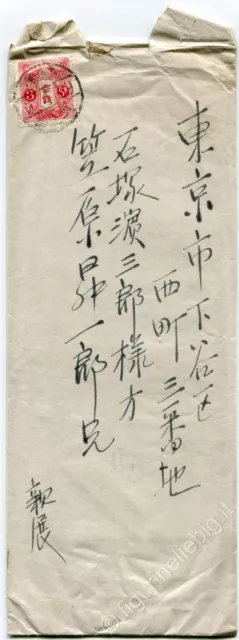 東京市下谷区
西町三番地
石塚濱三郎様方
笠原昇一郎兄
親展
3
3
© figurineliebig.it